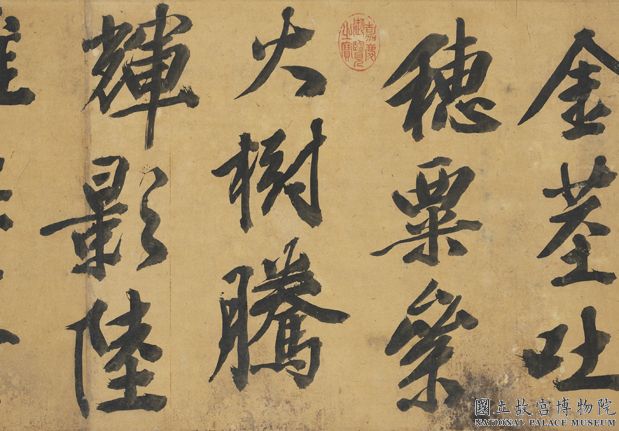 金莖吐
穗粟絫
火樹騰
輝影陸
嘉慶御覽之寶
國立故宮博物院
NATIONAL PALACE MUSEUM